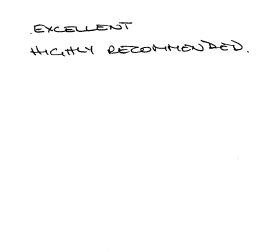 EXCELLENT
HIGHLY RECOMMENDED.